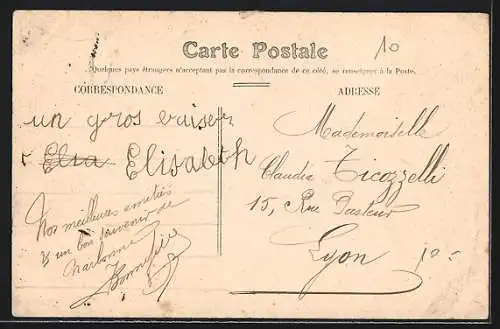 10
Carte Postale
Quelques pays étrangers n'acceptant pas la correspondance de ce côté, se renseigner à la Poste.
CORRESPONDANCE
ADRESSE
un gros baiser
Elsa Elisabeth
Nos meilleures amitiés
& un bon souvenir de
Narbonne
Mademoiselle
Claudia Ticozzelli
15, Rue Pasteur
Lyon
10-